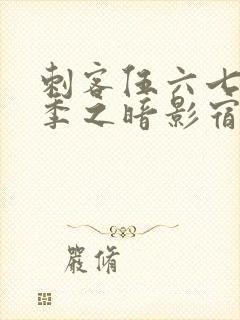 刺客伍六七
季之暗影宿
嚴脩